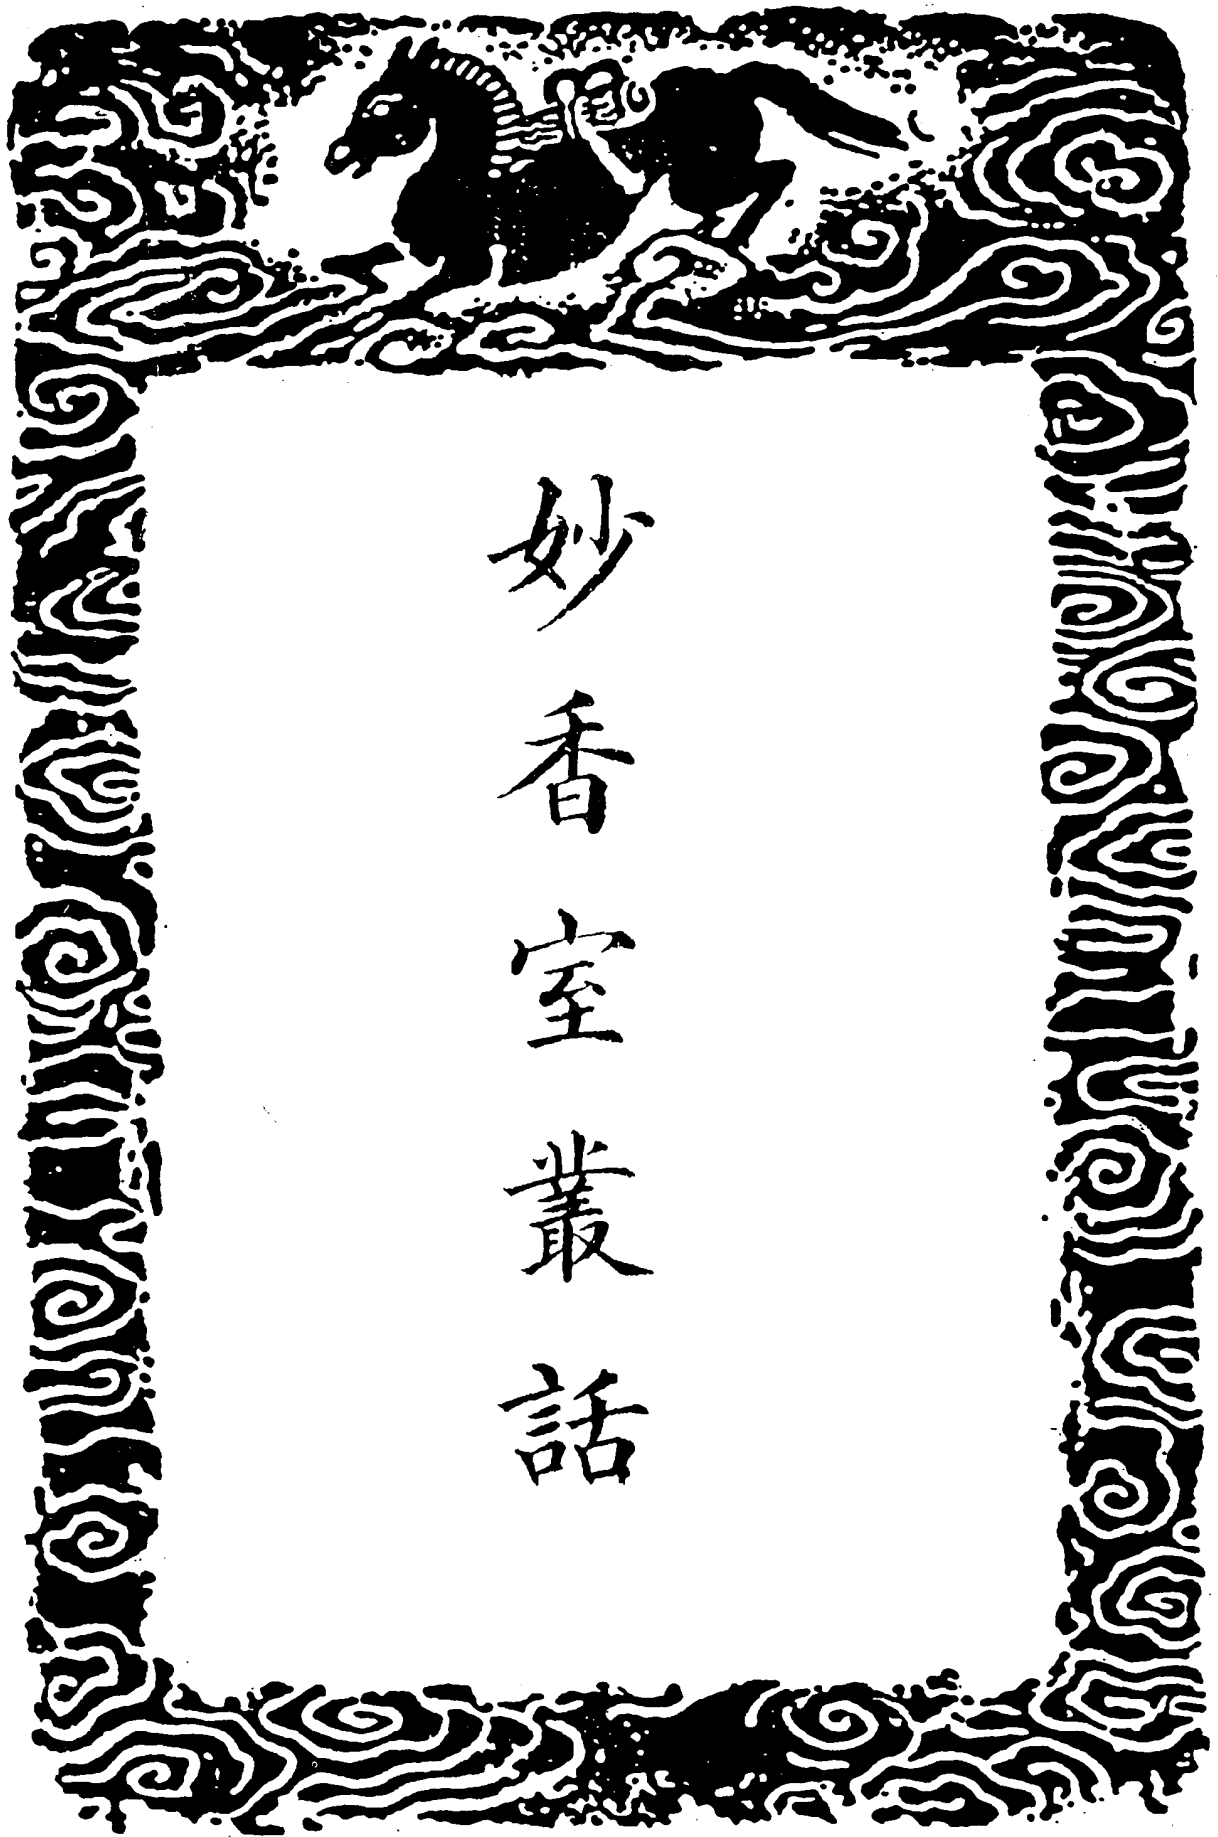 妙香室叢話